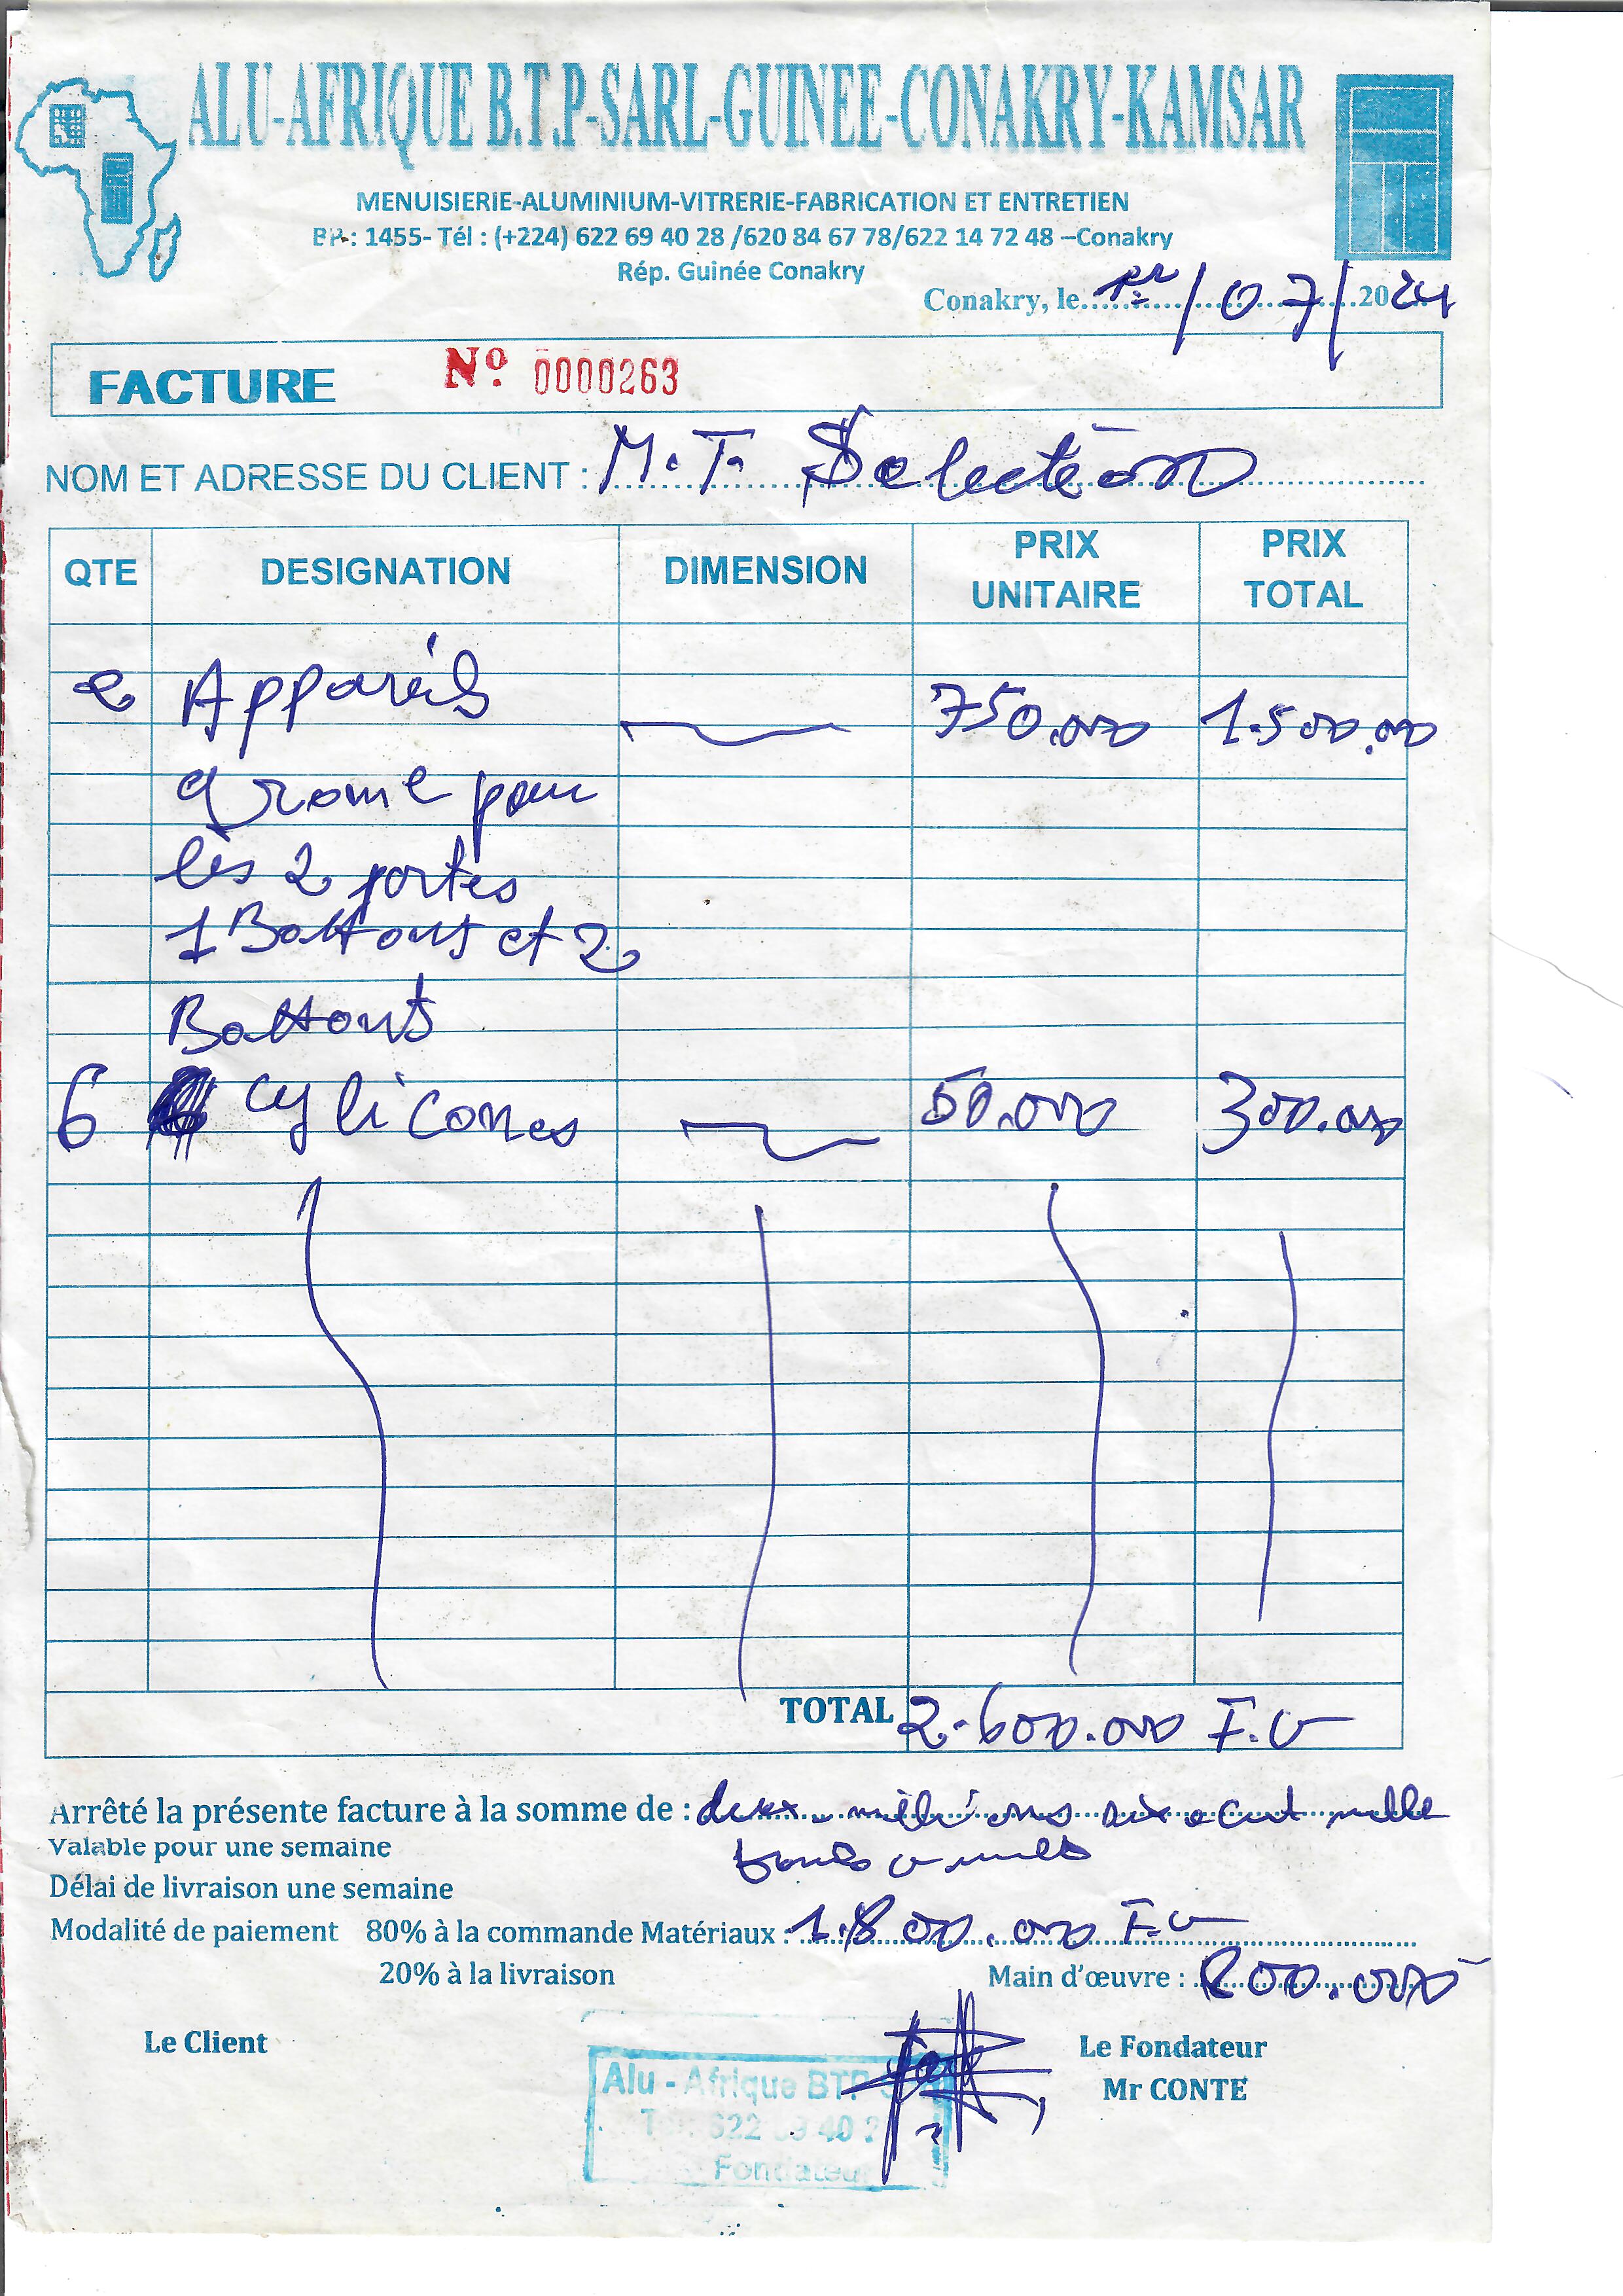 ALU-AFRIQUE B.T.P-SARL-GUINEE-CONAKRY-KAMSAR
MENUISIERIE-ALUMINIUM-VITRERIE-FABRICATION ET ENTRETIEN
BP.: 1455- Tél : (+224) 622 69 40 28 /620 84 67 78/622 14 72 48 –Conakry
Rép. Guinée Conakry
Conakry, le 1er/07/2024
FACTURE Nº 0000263
NOM ET ADRESSE DU CLIENT : M.T. Selection
QTE DESIGNATION DIMENSION PRIX UNITAIRE PRIX TOTAL
2 Appareils 750.000 1.500.000
grome pour
les 2 portes
1 Battants et 2
Battants
6 cylicones 50.000 300.000
TOTAL 2.600.000 F.G
Arrêté la présente facture à la somme de : deux millions six cent mille
Valable pour une semaine
Délai de livraison une semaine
Modalité de paiement 80% à la commande Matériaux : 1.800.000 F.G
20% à la livraison Main d'œuvre : 800.000
Le Client
Le Fondateur
Mr CONTE
Alu - Afrique BTP
622 69 40 2
Fondateur